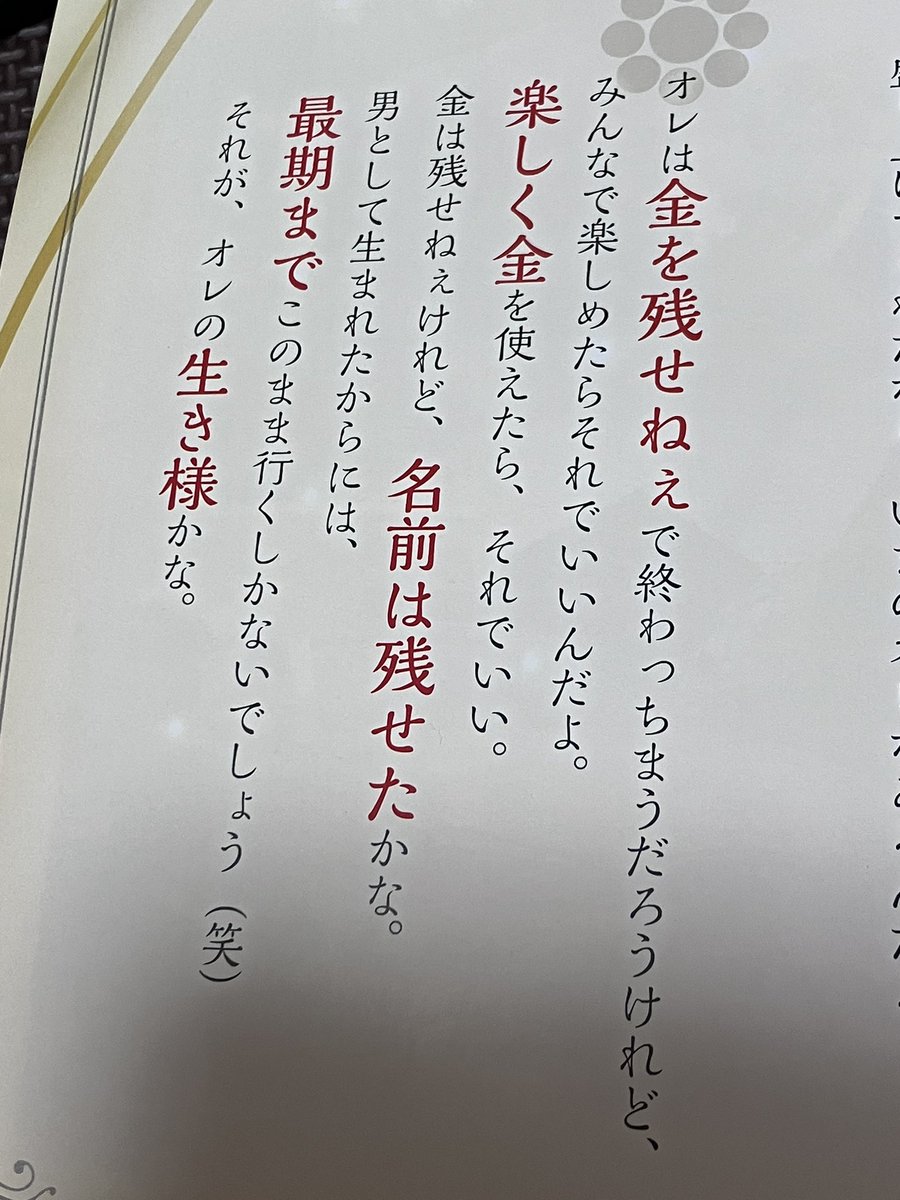 オレは金を残せねぇで終わっちまうだろうけれど、
みんなで楽しめたらそれでいいんだよ。
楽しく金を使えたら、それでいい。
金は残せねぇけれど、名前は残せたかな。
男として生まれたからには、
最期までこのまま行くしかないでしょう（笑）
それが、オレの生き様かな。